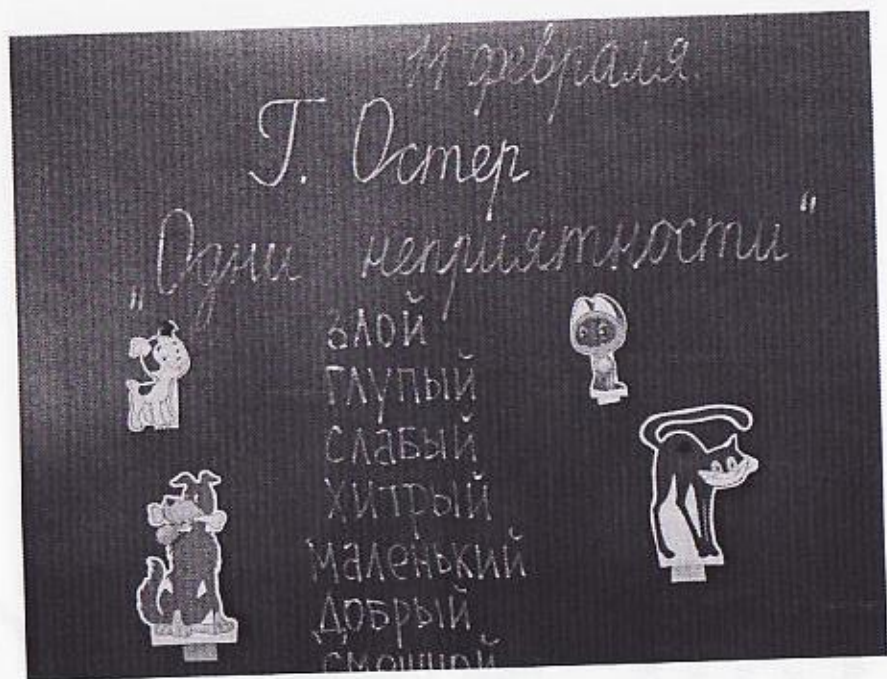 11 февраля.
Г. Остер
„Одни неприятности“
злой
глупый
слабый
хитрый
маленький
добрый